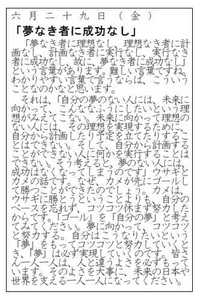 六月二十九日(金)
「夢なき者に成功なし」
「夢なき者に理想なし、理想なき者に計
画なし、計画なき者に実行なし、実行なき
者に成功なし、故に、夢なき者に成功なし」
という言葉があります。難しい言葉ですね。
わかりやすい言葉で言うならば、こういう
ことなのかなと思います。
それは、「自分の夢のない人には、未来に
向かって、こうしよう、こうしたいという理想
がみえてこない。未来に向かって理想の
ない人には、その理想を実現するために、
自分から計画し、
自分から計画
することができない。そして、
がないと、自分から実行することが
できない。そう考えると、夢のない人には、
成功はなくなってしまう」のです。ウサギとカ
メの話です。なぜ、カメが先にゴールし
て勝つことができたのでしょう。カメは、
ウサギに勝とうということよりも、自分の
ペースを乱れず、コツコツ休まず努力した
からです。「ゴール」を「自分の夢」と考え
てみてください。夢に向かって、コツコツ
努力する。自分は、こうなりたいという
「夢」をもってコツコツと努力していくと
き、「夢」は必ず実現していくのです。皆さ
ん一人一人は、人と違うよさを必ずもって
います。そのよさを大事に、未来の日本や
世界を支える一人一人になってください。